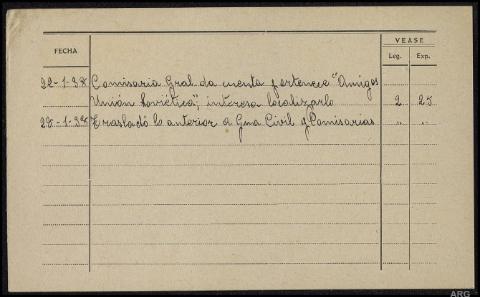 VEASE
FECHA
Leg. Exp.
22-1-38 Comisaria Gral da cuenta pertenece "Amigos
Unión Soviética; interesa localizarlo 2 25
28-1-38 Traslado lo anterior a Gna Civil y Comisarias " "
ARG